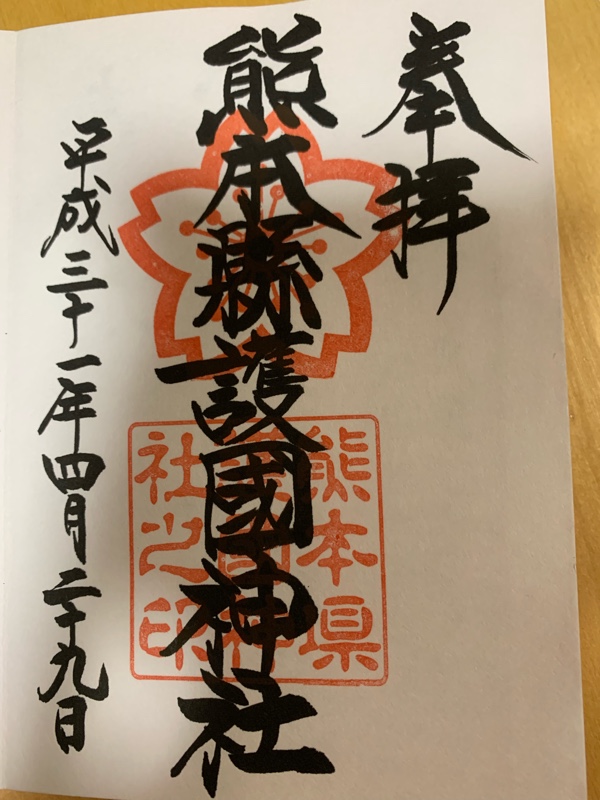 奉拝
熊本縣護國神社
平成三十一年四月二十九日
熊本県
護国神
社之印